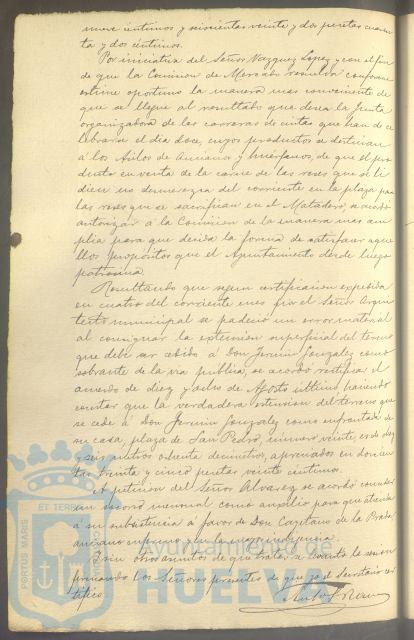 nueve céntimos y seiscientas veinte y dos pesetas cuaren-
ta y dos céntimos.
Por iniciativa del Señor Vazquez Lopez y con el fin
de que la Comision de Mercado resuelva conforme
estime oportuno la manera mas conveniente de
que se llegue al resultado que desea la Junta
organizadora de las carreras de cintas que han de ce
lebrarse el dia doce, cuyos productos se destinan
á los Asilos de Ancianos y huerfanos, de que el pro
ducto en venta de la carne de las reses que se li
dien no desmerezca del corriente en la plaza para
las reses que se sacrifican en el Matadero, se acordó
autorizar á la Comision de la manera mas am
plia para que decida la forma de satisfacer aque
llos propositos que el Ayuntamiento desde luego
patrocina.
Resultando que segun certificacion expedida
en cuatro del corriente mes por el Señor Arqui
tecto municipal se padeció un error material
al consignar la extension superficial del terreno
que debe ser cedido á Don Jercin Gonzalez como
sobrante de la via publica, se acordó rectificar el
acuerdo de diez y ocho de Agosto ultimo haciendo
constar que la verdadera extension del terreno que
se cede á Don Gonzalez como enfrontado de
su casa, plaza de San Pedro, número veinte, es de diez
y seis metros ochenta decimetros, apreciados en doscien
tas treinta y cinco pesetas veinte céntimos.
A peticion del Señor Alvarez se acordó conceder
un socorro mensual como auxilio para que atienda
á su subsistencia á favor de Don Cayetano de la Prada
anciano enfermo y en la mayor indigencia.
Y sin otros asuntos de que tratar se levantó la sesion
firmando los Señores presentes de que yo el Secretario cer
tifico
ET TERRAE
PORTUS MARIS
Ayuntamiento de
HUELVA